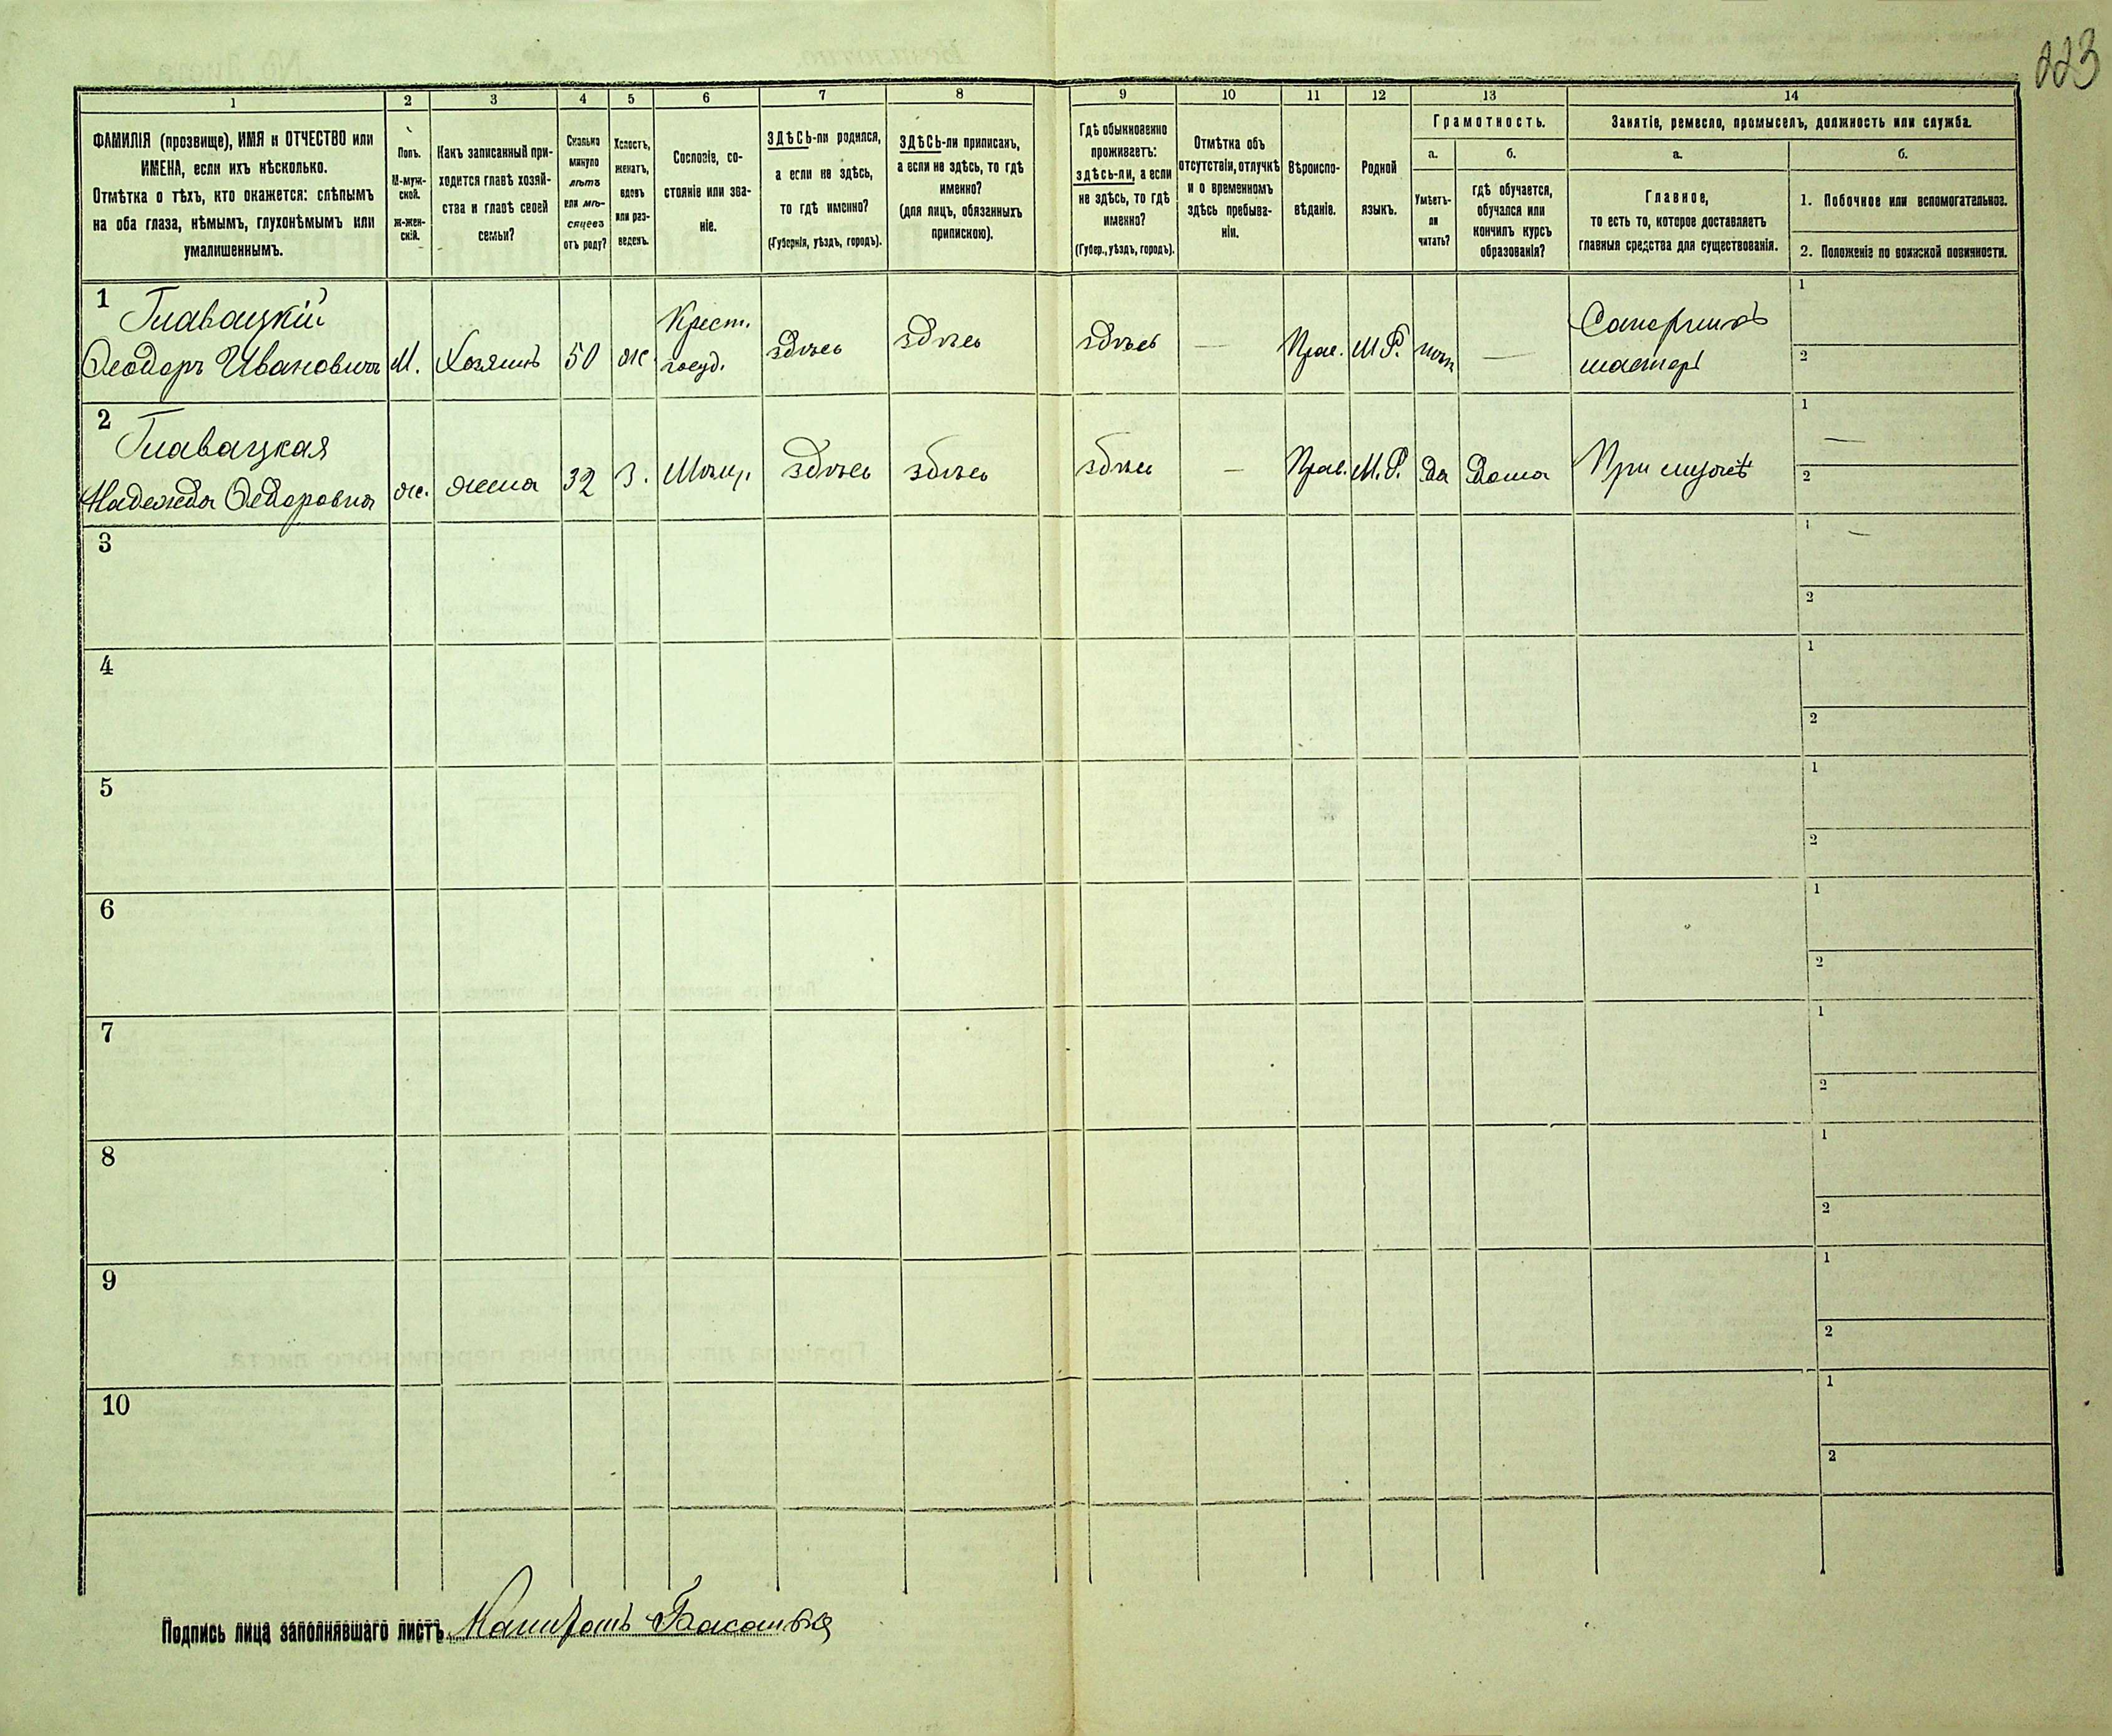 223
1 2 3 4 5 6 7 8 9 10 11 12 13 14
ФАМИЛІЯ (прозвище), ИМЯ и ОТЧЕСТВО или
ИМЕНА, если ихъ нѣсколько.
Отмѣтка о тѣхъ, кто окажется: слѣпымъ
на оба глаза, нѣмымъ, глухонѣмымъ или
умалишеннымъ.
Полъ.
М-муж-
ской.
ж-жен-
скій.
Какъ записанный при-
ходится главѣ хозяй-
ства и главѣ своей
семьи?
Сколько
минуло
лѣтъ
или мѣ-
сяцевъ
отъ роду?
Холостъ,
женатъ,
вдовъ
или раз-
веденъ.
Сословіе, со-
стояніе или зва-
ніе.
ЗДѢСЬ-ли родился,
а если не здѣсь,
то гдѣ именно?
(Губернія, уѣздъ, городъ).
ЗДѢСЬ-ли приписанъ,
а если не здѣсь, то гдѣ
именно?
(для лицъ, обязанныхъ
припискою).
Гдѣ обыкновенно
проживаетъ:
здѣсь-ли, а если
не здѣсь, то гдѣ
именно?
(Губер., уѣздъ, городъ).
Отмѣтка объ
отсутствіи, отлучкѣ
и о временномъ
здѣсь пребыва-
ніи.
Вѣроиспо-
вѣданіе.
Родной
языкъ.
Грамотность.
а.
Умѣетъ-
ли
читать?
б.
гдѣ обучается,
обучался или
кончилъ курсъ
образованія?
Занятіе, ремесло, промыселъ, должность или служба.
а.
Главное,
то есть то, которое доставляетъ
главныя средства для существованія.
б.
1. Побочное или вспомогательное.
2. Положеніе по воинской повинности.
1
Главацкій
Ѳеодоръ Ивановичъ М. Хозяинъ 50 ж. Крест. госуд. здѣсь здѣсь здѣсь — Прав. М.Р. нѣтъ — мастеръ
1
2
2
Главацкая
Надежда Ѳедоровна ж. жена 32 З. Мѣщ. здѣсь здѣсь здѣсь — Прав. М.Р. Да Дома При мужѣ
1 —
2
3
1 —
2
4
1
2
5
1
2
6
1
2
7
1
2
8
1
2
9
1
2
10
1
2
Подпись лица заполнявшаго листъ